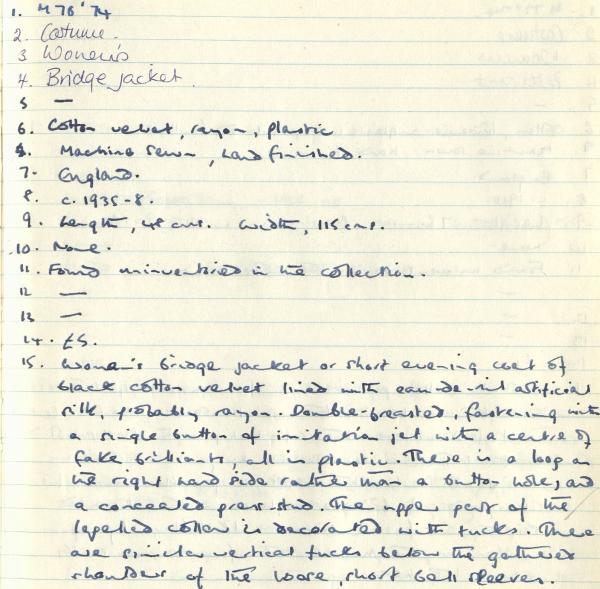 1. M 78 '74
2. Costume.
3 Women's
4. Bridge jacket.
5 —
6. Cotton velvet, rayon, plastic
8. Machine sewn, hand finished.
7. England.
8. c. 1935-8.
9. Length, 48 cms. Width, 115 cms.
10. None.
11. Found uninventoried in the collection.
12 —
13 —
14. £5.
15. Women's bridge jacket or short evening coat of
black cotton velvet lined with eau-de-nil artificial
silk, probably rayon. Double-breasted, fastening with
a single button of imitation jet with a centre of
fake brilliants, all in plastic. There is a loop on
the right hand side rather than a button hole, and
a concealed press-stud. The upper part of the
lapelled collar is decorated with tucks. There
are similar vertical tucks below the gathered
shoulders of the loose, short bell sleeves.